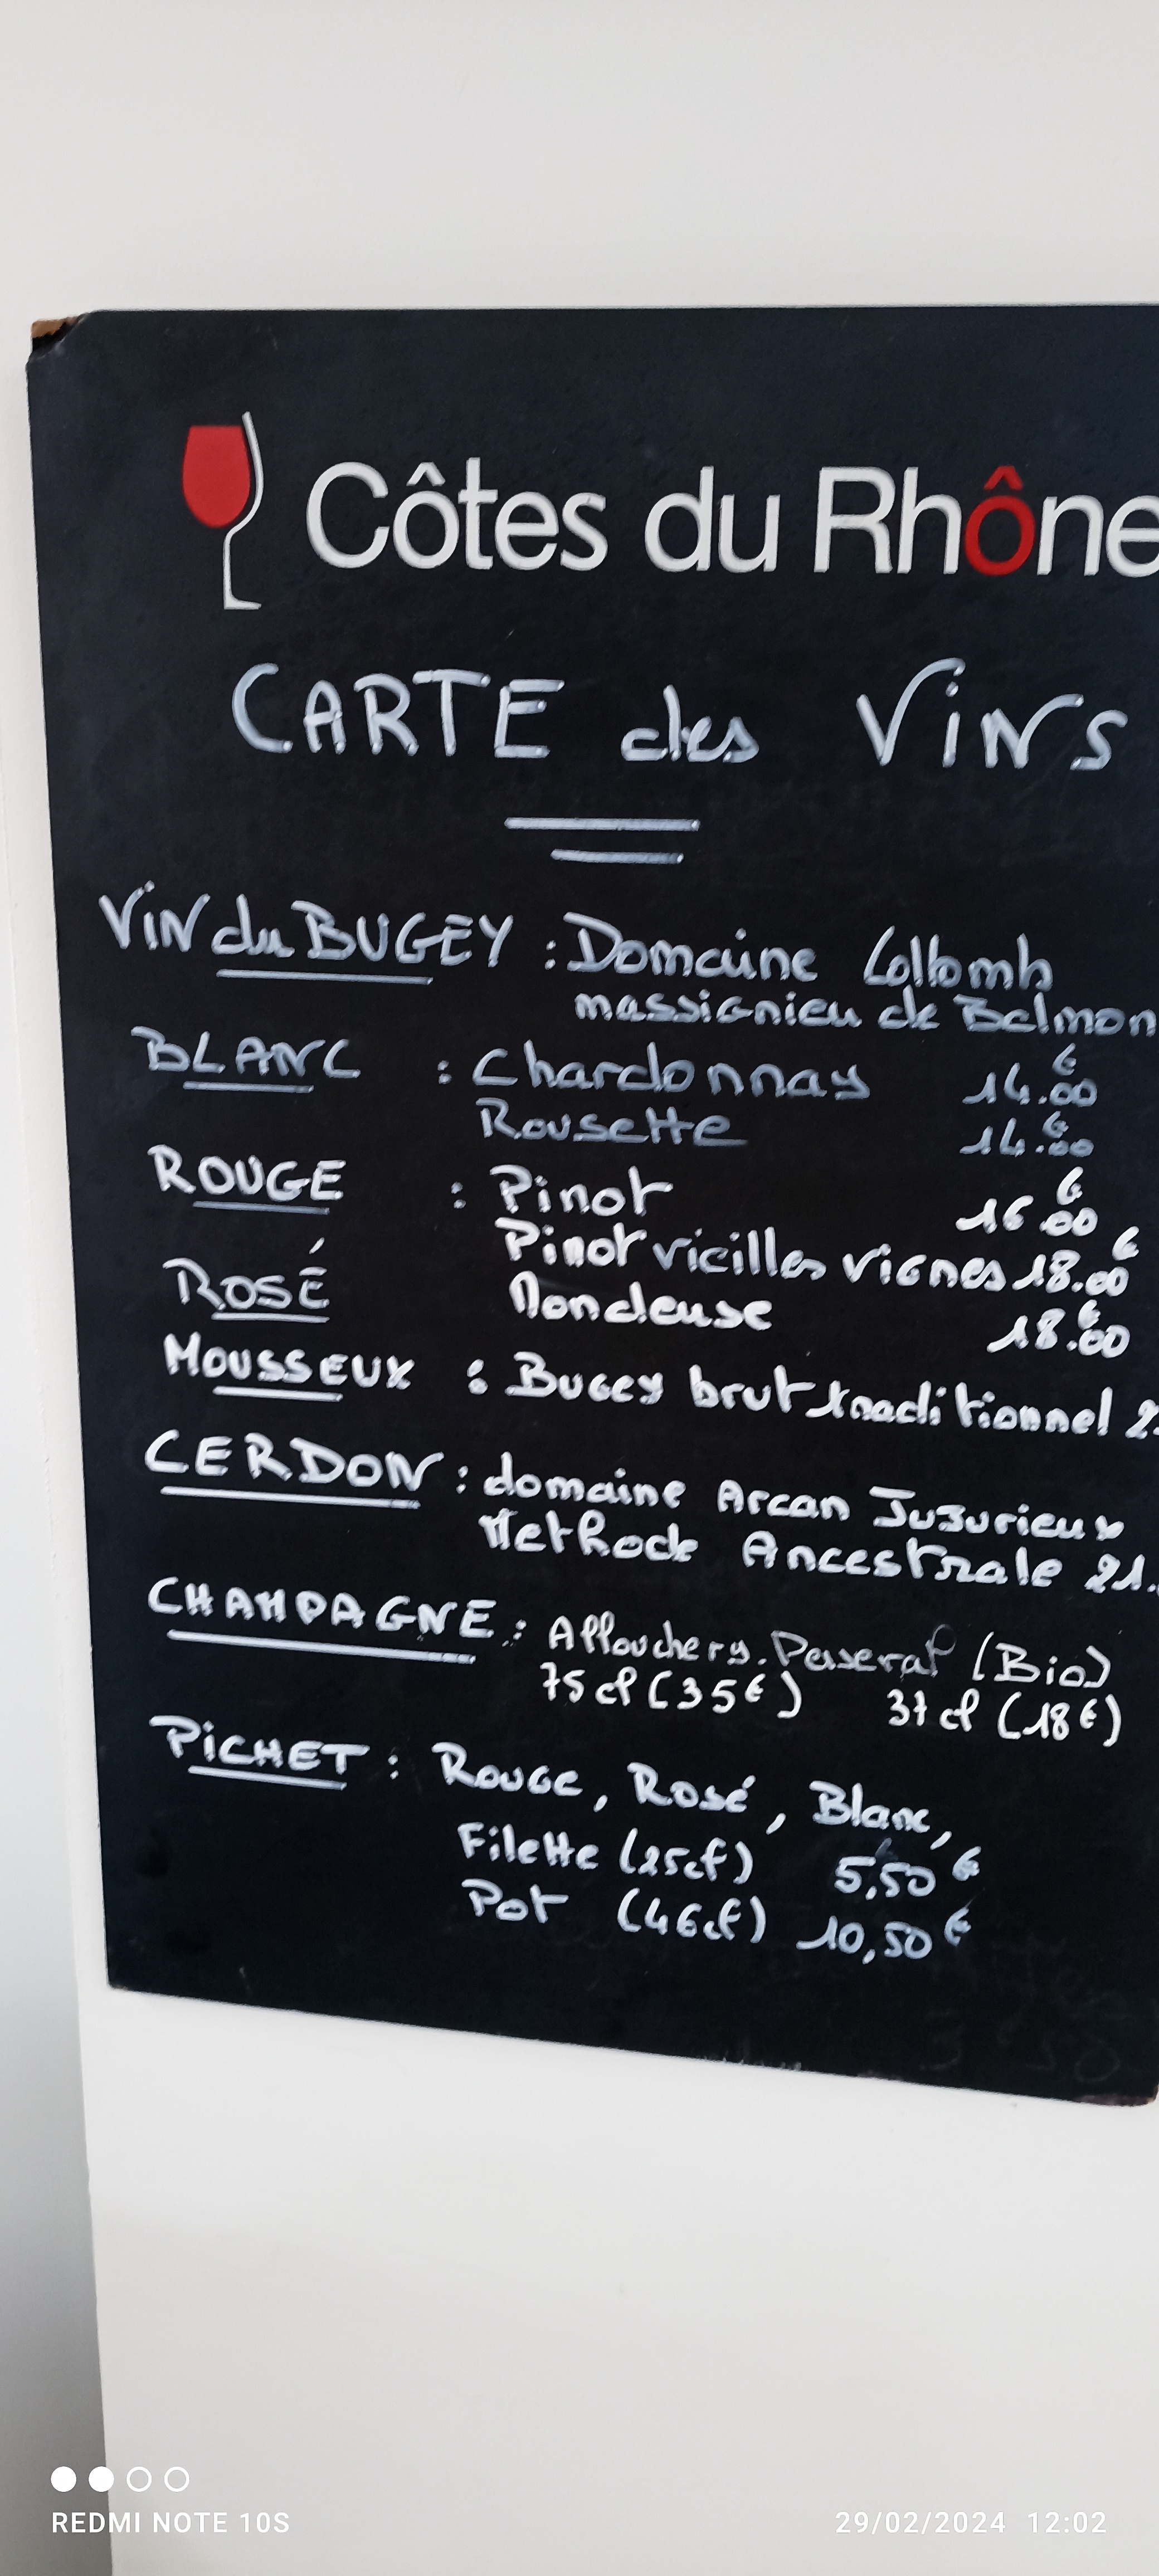 Côtes du Rhône
CARTE des VINS
VIN du BUGEY : Domaine Collomb
massignieu de Belmon
BLANC : Chardonnay 14.00 €
Rousette 14.00 €
ROUGE : Pinot 16.00 €
Pinot vieilles vignes 18.00 €
ROSÉ Mondeuse 18.00 €
MOUSSEUX : Bugey brut traditionnel 2
CERDON : domaine Arcan Jujurieux
Methode Ancestrale 21.
CHAMPAGNE : Allouchery. (Bio)
75 cl (35€) 37 cl (18€)
PICHET : Rouge, Rosé, Blanc,
Filette (25cl) 5,50 €
Pot (46cl) 10,50 €
REDMI NOTE 10S
29/02/2024 12:02